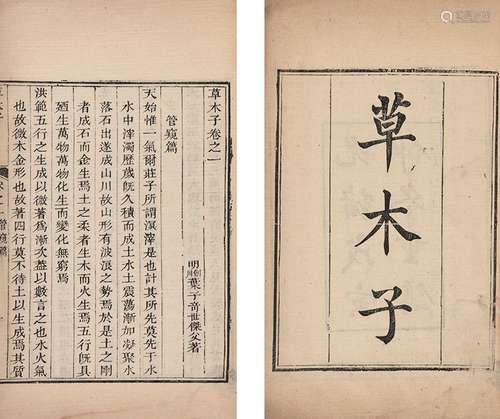 草木子
草木子卷之一
管窺篇
明 葉子奇世傑父著
天始惟一氣爾莊子所謂溟涬是也計其所先莫先于水
水中滓濁歷歲旣久積而成土水土震蕩漸加凝聚水
落石出遂成山川故山形有波浪之勢焉於是土之剛
者成石而金生焉土之柔者生木而火生焉五行旣具
廼生萬物萬物化生而變化無窮焉
洪範五行之生成以微著爲漸次蓋以數言之也水火氣
也故微木金形也故著四行莫不待土以生成焉其質